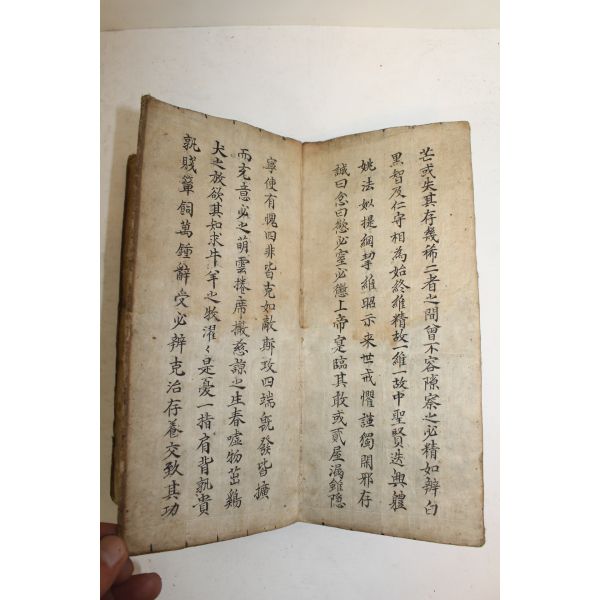 芒或失其存幾稀二者之間曾不容隙察之必精如辨白
黑智及仁守相為始終維精故一維一故中聖賢迭興軆
姚法姒提綱挈維昭示来世戒懼謹獨閑邪存
誠曰忿曰慾必窒必懲上帝寔臨其敢或貳屋漏雖隐
寧使有愧四非皆克如敵斯攻四端旣發皆擴
而充意必之萌雲捲席撤慈諒之生春噓物茁鷄
犬之放欲其知求牛羊之牧濯々是憂一指肩背孰貴
孰賤簞飼萬鍾辭受必辨克治存養交致其功